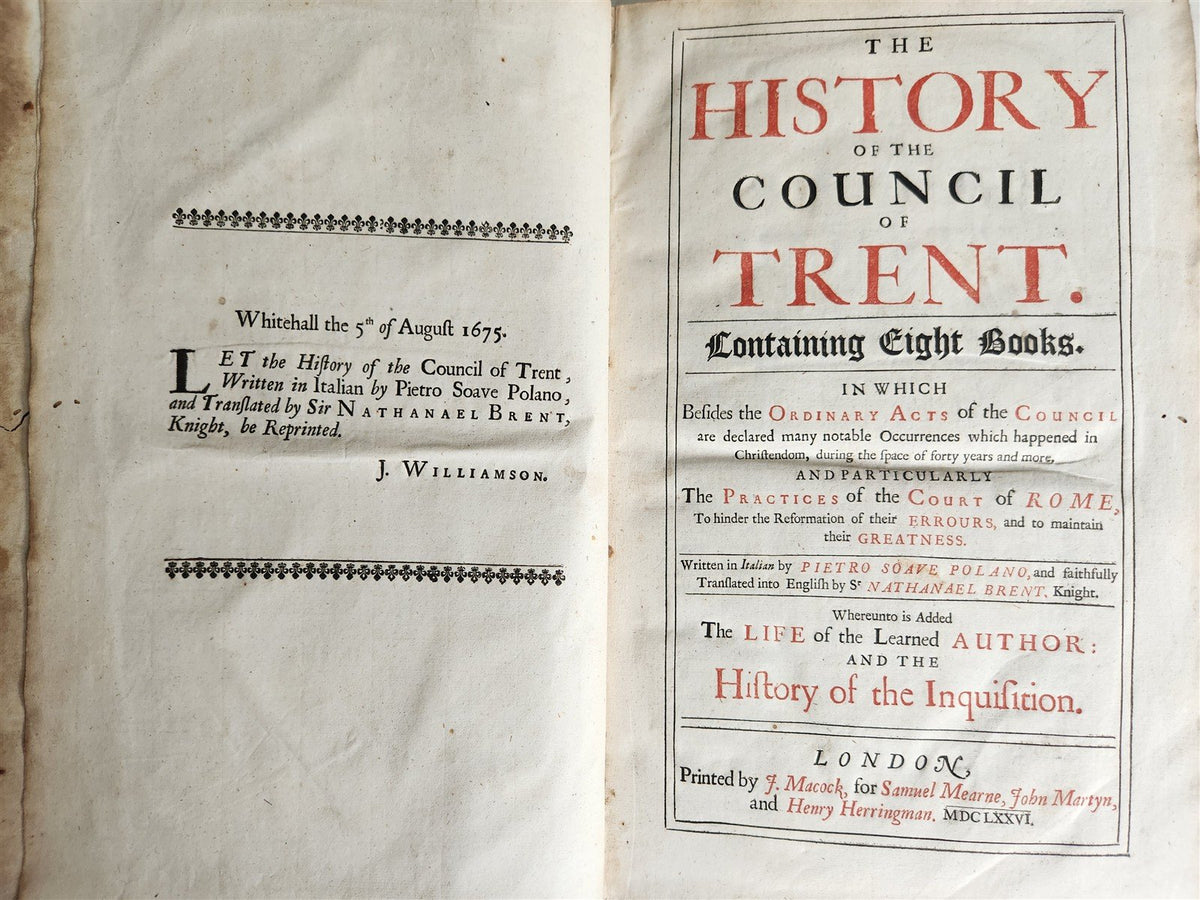 Whitehall the 5th of Auguſt 1675.
LET the Hiſtory of the Council of Trent,
Written in Italian by Pietro Soave Polano,
and Tranſlated by Sir NATHANAEL BRENT,
Knight, be Reprinted.
J. WILLIAMSON.
THE
HISTORY
OF THE
COUNCIL
OF
TRENT.
Containing Eight Books.
IN WHICH
Beſides the ORDINARY ACTS of the COUNCIL
are declared many notable Occurrences which happened in
Chriſtendom, during the ſpace of forty years and more,
AND PARTICULARLY
The PRACTICES of the COURT of ROME,
To hinder the Reformation of their ERROURS, and to maintain
their GREATNESS.
Written in Italian by PIETRO SOAVE POLANO, and faithfully
Tranſlated into Engliſh by Sr NATHANAEL BRENT, Knight.
Whereunto is Added
The LIFE of the Learned AUTHOR:
AND THE
Hiſtory of the Inquiſition.
LONDON,
Printed by J. Macock, for Samuel Mearne, John Martyn,
and Henry Herringman. MDCLXXVI.